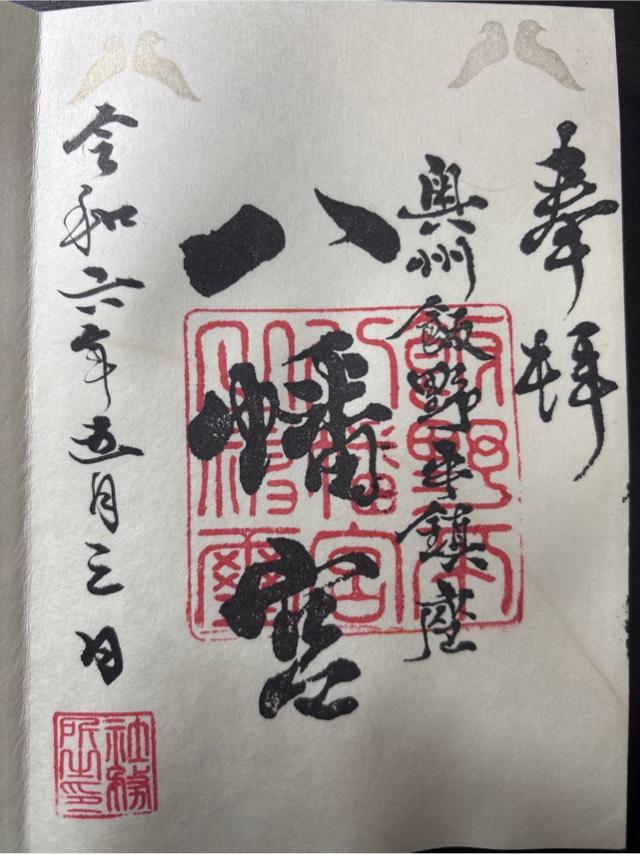 奉拝
奥州飯野平鎮座
八幡宮
令和六年五月三日
飯野平
八幡宮
社務
所之印